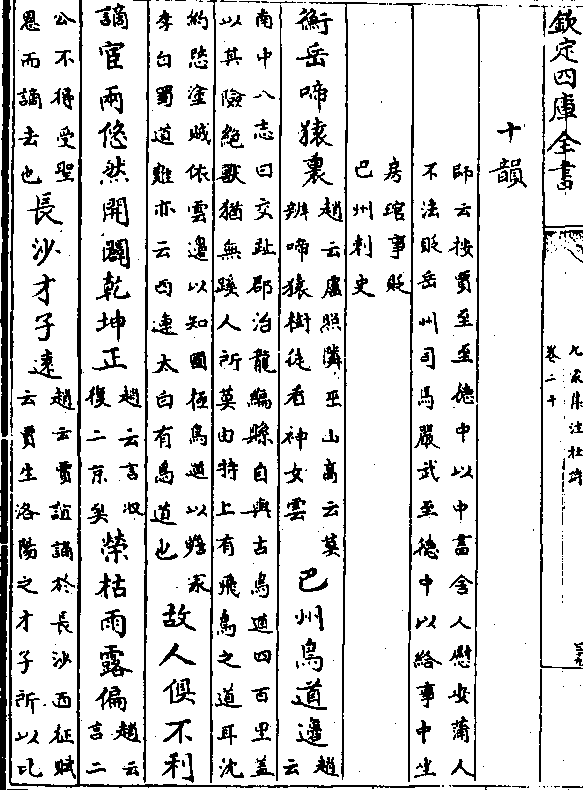 欽定四庫全書
九家集注杜詩
卷二十
十韻
師云按賈至至德中以中書舍人慰安蒲人
不法貶岳州司馬嚴武至德中以給事中坐
房琯事貶
巴州刺史
衡岳啼猿裏趙云盧照隣巫山高云莫
辨啼猿樹徒看神女雲巴州鳥道邊趙
云
南中八志曰交趾郡治龍編縣自興古鳥道四百里蓋
以其險絶獸猶無蹊人所莫由特上有飛鳥之道耳沈
約愍塗賦依雲邊以知國極鳥道以瞻家
李白蜀道難亦云西連太白有鳥道也故人俱不利
謫宦兩悠然開闢乾坤正趙云言収
復二京矣榮枯雨露偏趙云
言二
公不得受聖
恩而謫去也長沙才子遠趙云賈誼謫於長沙西征賦
云賈生洛陽之才子所以比